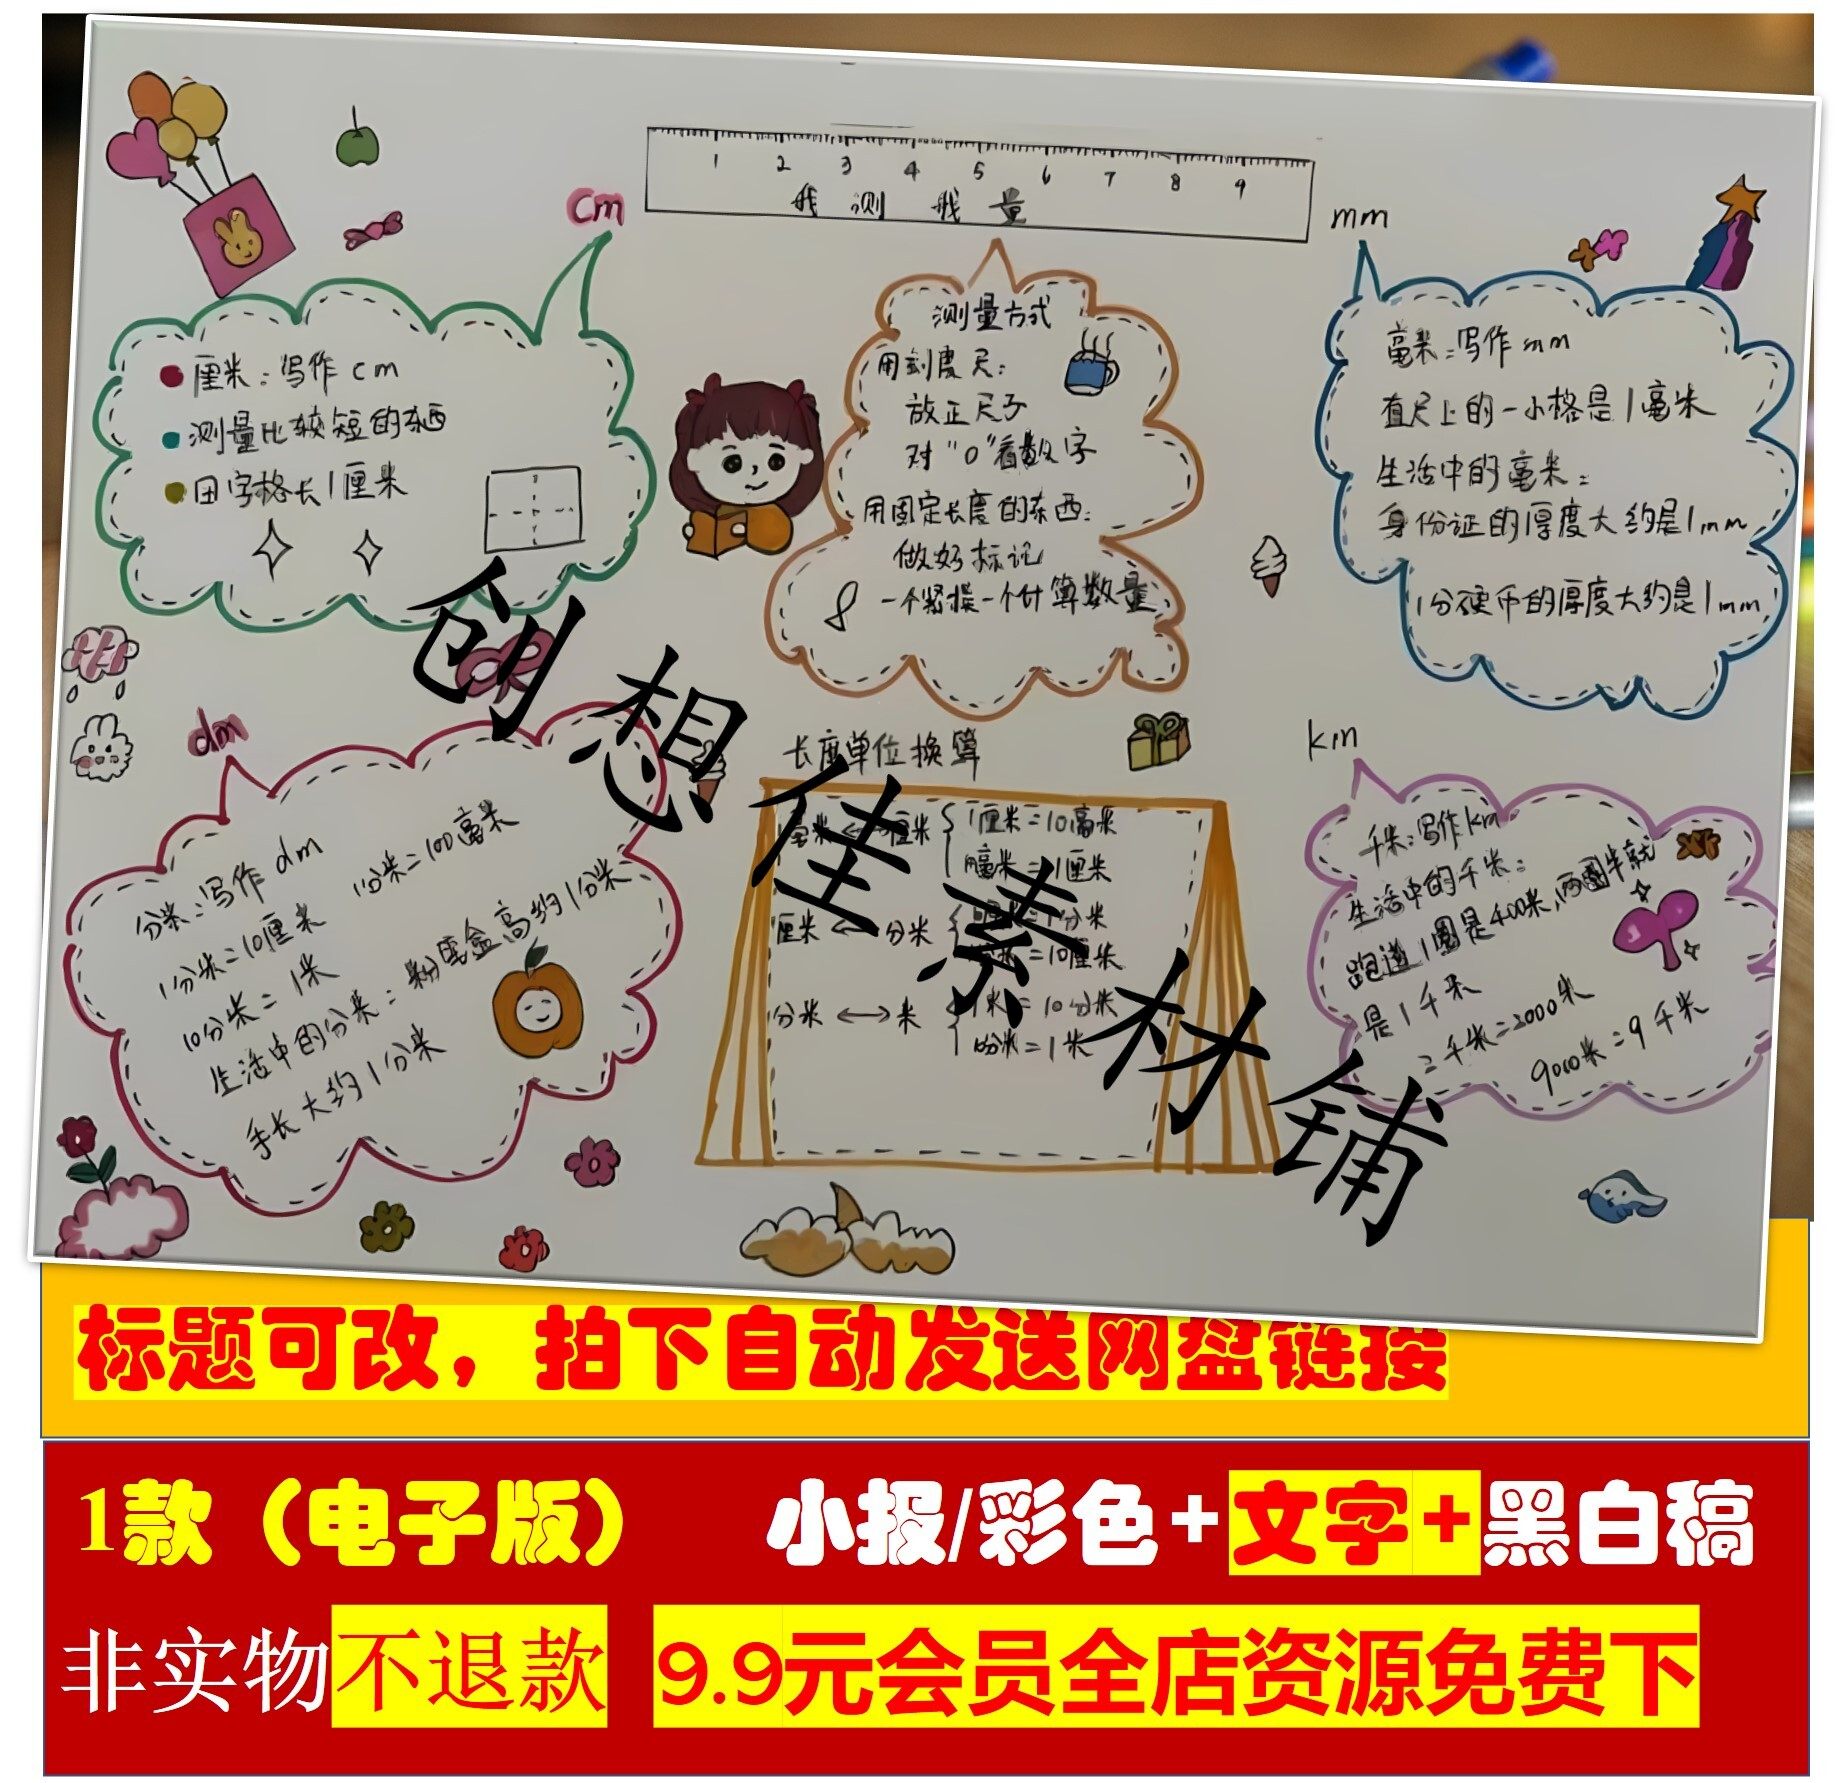 1 2 3 4 5 6 7 8 9
我 测 我 量
cm
厘米：写作 cm
测量比较短的东西
田字格长1厘米
测量方式
用刻度尺：
放正尺子
对“0”看数字
用固定长度的东西：
做好标记
一个紧挨一个计算数量
mm
毫米：写作 mm
直尺上的一小格是1毫米
生活中的毫米：
身份证的厚度大约是1mm
1分硬币的厚度大约是1mm
dm
分米：写作 dm
1分米=10厘米 1分米=100毫米
10分米=1米
生活中的分米：粉笔盒高约1分米
手长大约1分米
长度单位换算
毫米 ↔ 厘米 1厘米=10毫米
毫米=1厘米
厘米 ↔ 分米
=10厘米
分米 ↔ 米 1米=10分米
10分米=1米
km
千米：写作km
生活中的千米：
跑道1圈是400米，两圈半就
是1千米
2千米=2000米
9000米=9千米
创想佳素材铺
标题可改，拍下自动发送网盘链接
1款（电子版） 小报/彩色+文字+黑白稿
非实物不退款 9.9元会员全店资源免费下